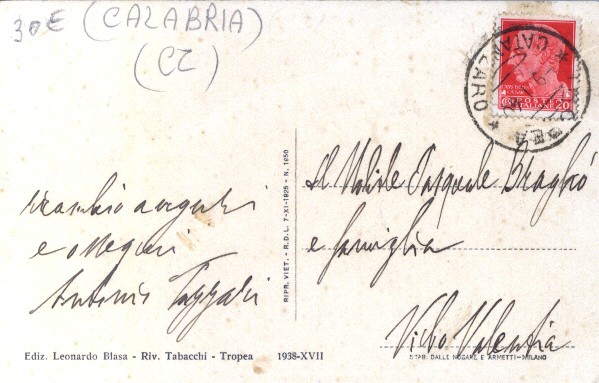 30€ (CALABRIA)
(CZ)
POSTE
ITALIANE 20
* CATANZARO *
scambio auguri
e ossequi
Antonio
Al Nobile Pasquale Bragho
e famiglia
Vibo Valentia
RIPR. VIET. - R.D.L. 7-XI-1925 - N. 1950
Ediz. Leonardo Blasa - Riv. Tabacchi - Tropea 1938-XVII
STAB. DALLE NOGARE E ARMETTI-MILANO